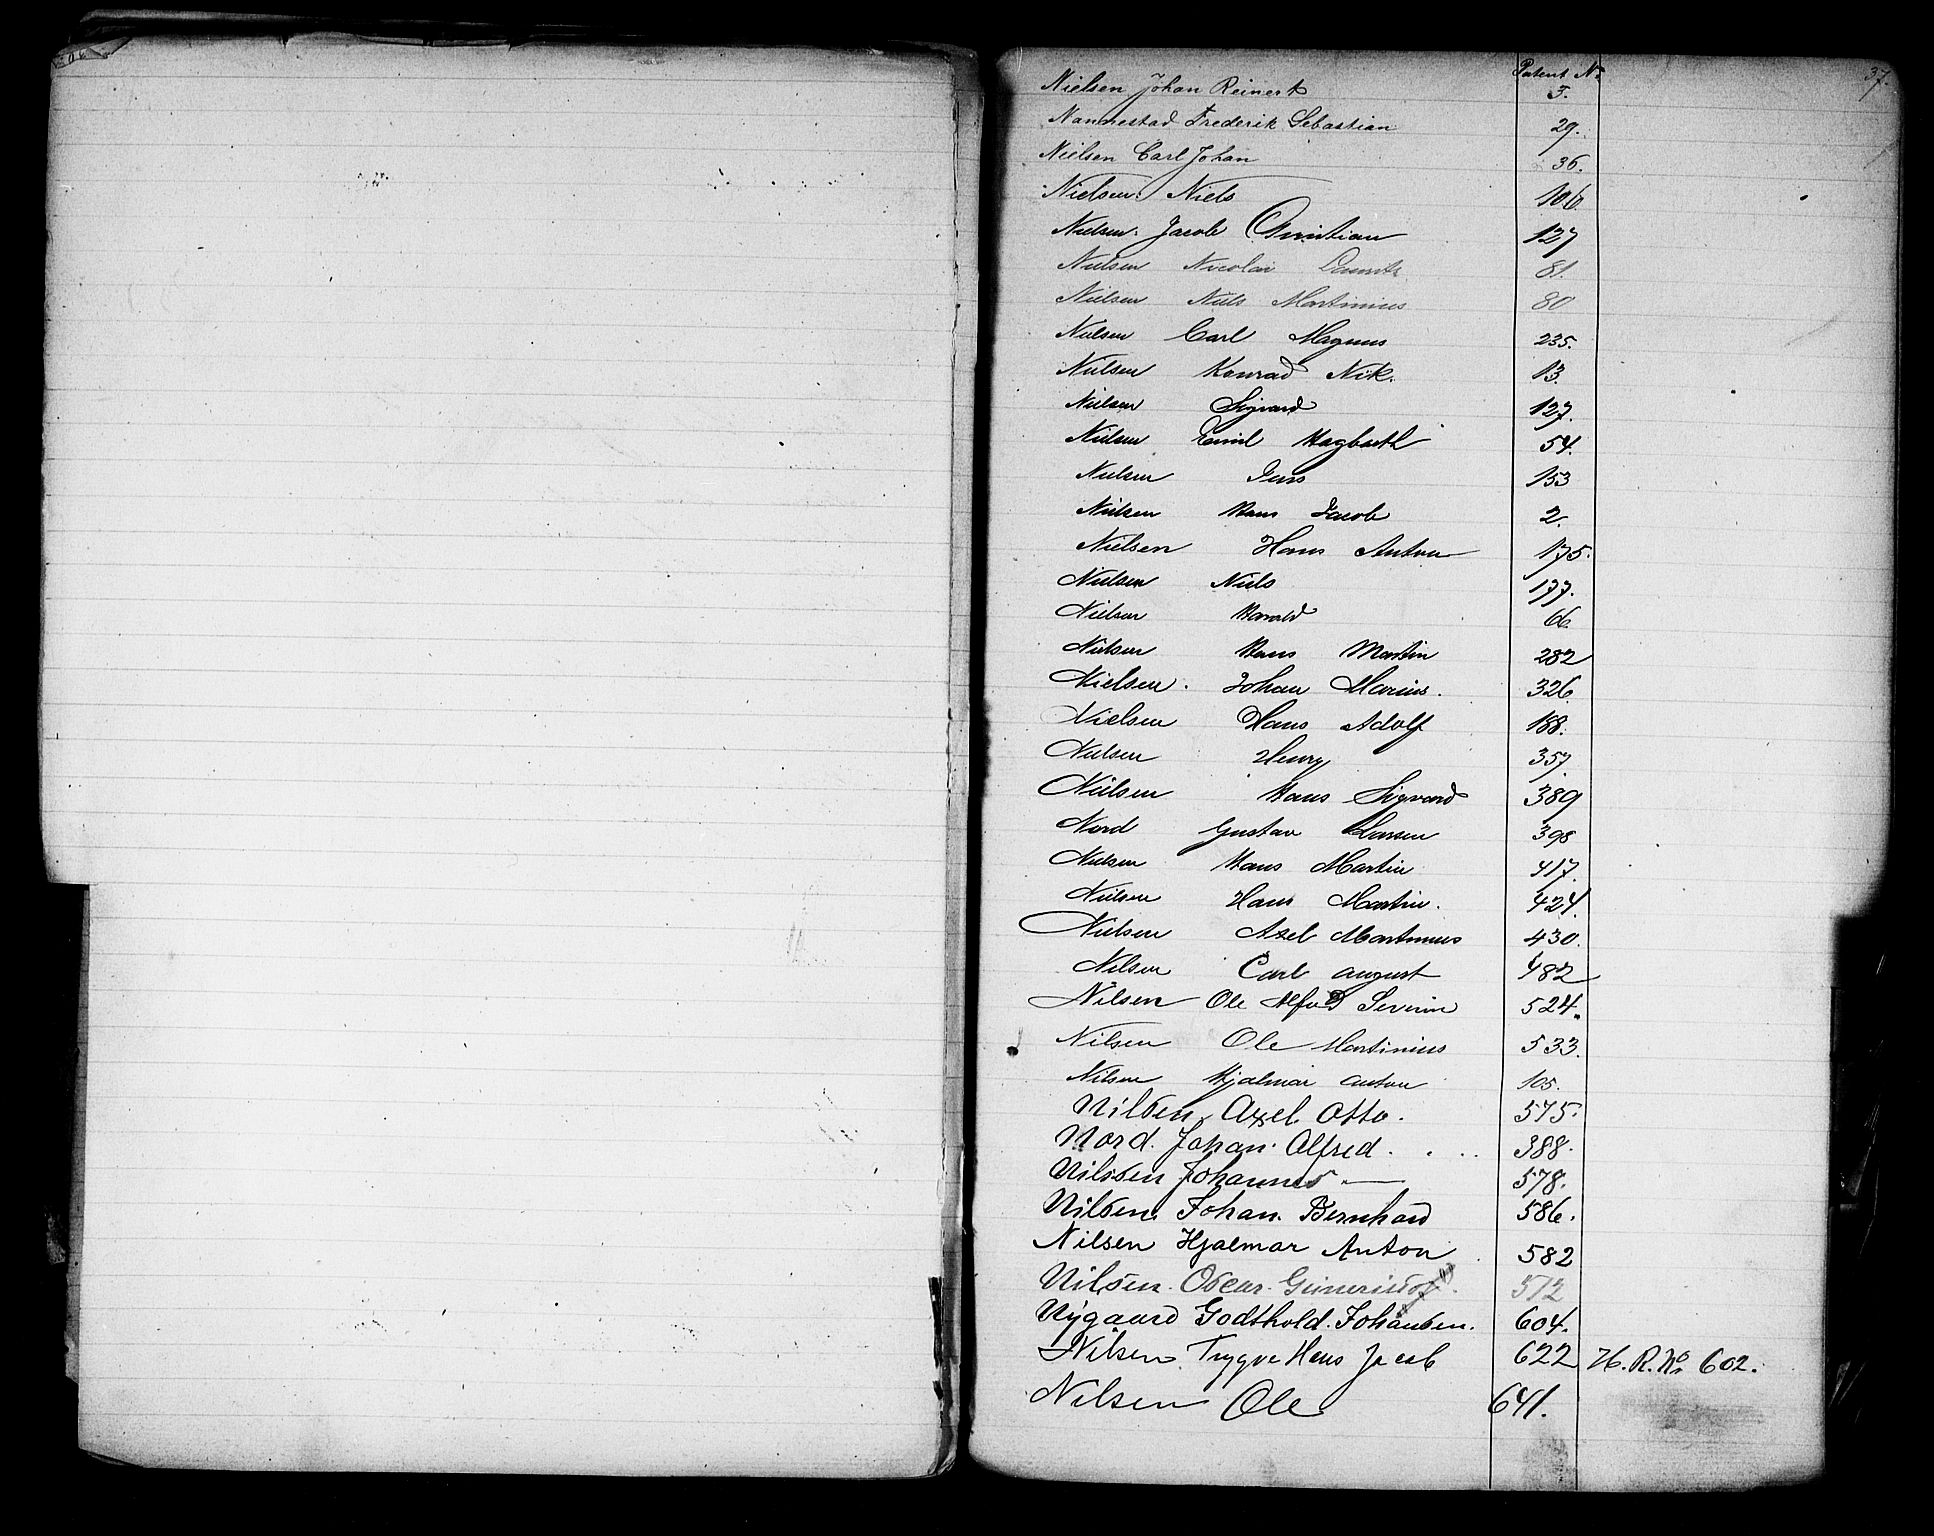 Patent No
37.
Nielsen Johan Reinert 5.
Nannestad Frederik Sebastian 29.
Nielsen Carl Johan 36.
Nielsen. Niels 106
Nielsen. Jacob Christian 127
Nielsen Nicolai Lauritz 81.
Nielsen Niels Martinius 80
Nielsen Carl Magnus 235.
Nielsen Konrad Nik. 13.
Nielsen Sigvard 127.
Nielsen Emil Hagbarth 54.
Nielsen Jens 153
Nielsen Hans Jacob 2.
Nielsen Hans Anton 175.
Nielsen Niels 177.
Nielsen Harald 66
Nielsen Hans Martin 282
Nielsen. Johan Marius. 326
Nielsen Hans Adolf 188.
Nielsen Henry 357
Nielsen Hans Sigvard 389
Nord Gustav Larsen 398
Nielsen Hans Martin 417.
Nielsen Hans Martin. 424.
Nielsen Axel Martinius 430.
Nilsen Carl August 482
Nilsen Ole Alfred Severin 524.
Nilsen Ole Martinius 533.
Nilsen Hjalmar Anton 105.
Nilsen, Axel Otto. 575.
Nord. Johan. Alfred. 388.
Nilssen Johannes — 578.
Nilsen. Johan. Bernhard 586.
Nilsen Hjalmar Anton 582
Nilsen. Oscar. 572
Nygaard Godthold. Johansen. 604.
Nilsen, Trygve Hans Jacob 622 H. R. No 602.
Nilsen Ole 641.